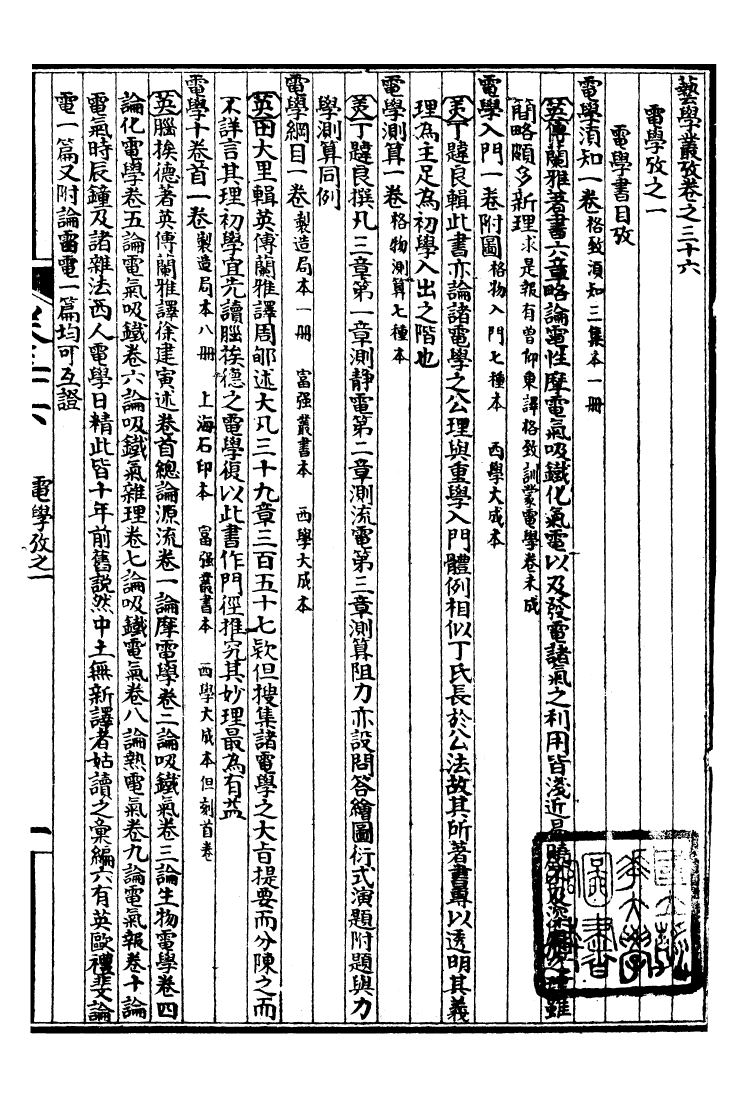 藝學叢攷卷之三十六
電學攷之一
電學書目攷
電學須知一卷 格致須知三集本一冊
英傅蘭雅著書六章略論電性摩電氣吸鐵化氣電以及發電諸氣之利用皆淺近易曉 雖
簡略頗多新理 求是報有曾仰東譯格致訓蒙電學卷未成
電學入門一卷附圖 格物入門七種本 西學大成本
美丁韙良輯此書亦論諸電學之公理與重學入門體例相似丁氏長於公法故其所著書專以透明其義
理為主足為初學入出之階也
電學測算一卷 格物測算七種本
美丁韙良撰凡三章第一章測靜電第二章測流電第三章測算阻力亦設問答繪圖衍式演題附題與力
學測算同例
電學綱目一卷 製造局本一冊 富强叢書本 西學大成本
英田大里輯英傅蘭雅譯周郇述大凡三十九章三百五十七欵但搜集諸電學之大旨提要而分陳之而
不詳言其理初學宜先讀腦挨德之電學復以此書作門徑推究其妙理最為有益
電學十卷首一卷 製造局本八冊 上海石印本 富强叢書本 西學大成本但刻首卷
英腦挨德著英傅蘭雅譯徐建寅述卷首總論源流卷一論摩電學卷二論吸鐵氣卷三論生物電學卷四
論化電學卷五論電氣吸鐵卷六論吸鐵氣雜理卷七論吸鐵電氣卷八論熱電氣卷九論電氣報卷十論
電氣時辰鐘及諸雜法西人電學日精此皆十年前舊説然中土無新譯者姑讀之彙編六有英歐禮斐論
電一篇又附論雷電一篇均可互證
卷三十六
電學攷之一
一
國立清華大學圖書館